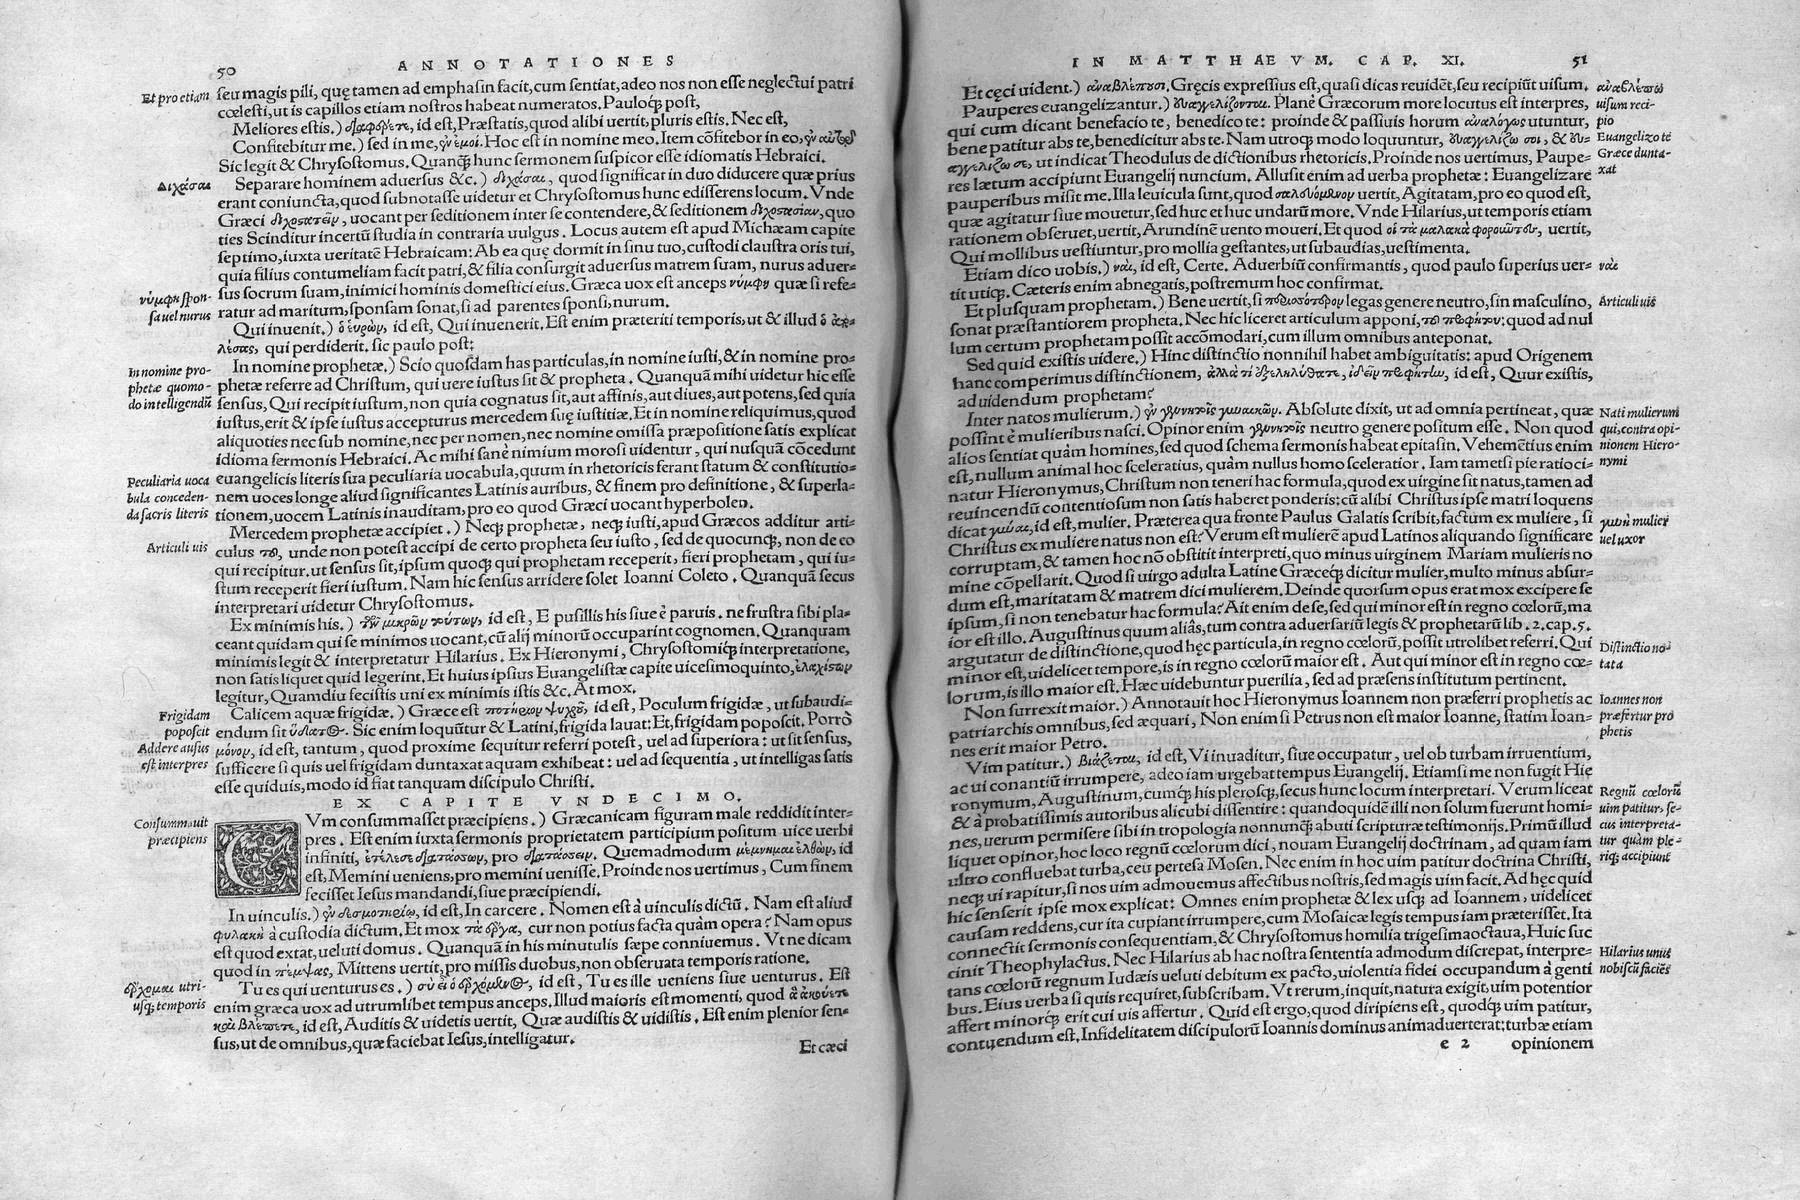 50 ANNOTATIONES
Et pro etiam
seu magis pili, quę tamen ad emphasin facit, cum sentiat, adeo nos non esse neglectui patri
cœlesti, ut is capillos etiam nostros habeat numeratos. Pauloq́; post,
Meliores estis.) διαφέρετε, id est, Præstatis, quod alibi uertit, pluris estis. Nec est,
Confitebitur me.) sed in me, ἐν ἐμοί. Hoc est in nomine meo. Item cōfitebor in eo, ἐν αὐτῷ
Sic legit & Chrysostomus. Quanq̃ hunc sermonem suspicor esse idiomatis Hebraici.
Διχάσαι
Separare hominem aduersus &c.) διχάσαι, quod significat in duo diducere quæ prius
erant coniuncta, quod subnotasse uidetur et Chrysostomus hunc edisserens locum. Vnde
Græci διχοστατεῖν, uocant per seditionem inter se contendere, & seditionem διχοστασίαν, quo
ties Scinditur incertū studia in contraria uulgus. Locus autem est apud Michæam capite
septimo, iuxta ueritatē Hebraicam: Ab ea quę dormit in sinu tuo, custodi claustra oris tui,
quia filius contumeliam facit patri, & filia consurgit aduersus matrem suam, nurus aduer-
sus socrum suam, inimici hominis domestici eius. Græca uox est anceps νύμφη quæ si refe-
νύμφη spon-
sa uel nurus
ratur ad maritum, sponsam sonat, si ad parentes sponsi, nurum.
Qui inuenit.) ὁ εὑρὼν, id est, Qui inuenerit. Est enim præteriti temporis, ut & illud ὁ ἀπο-
λέσας, qui perdiderit. sic paulo post:
In nomine pro-
phetæ quomo-
do intelligendū
In nomine prophetæ.) Scio quosdam has particulas, in nomine iusti, & in nomine pro-
phetæ referre ad Christum, qui uere iustus sit & propheta. Quanquā mihi uidetur hic esse
sensus, Qui recipit iustum, non quia cognatus sit, aut affinis, aut diues, aut potens, sed quia
iustus, erit & ipse iustus accepturus mercedem suę iustitiæ. Et in nomine reliquimus, quod
aliquoties nec sub nomine, nec per nomen, nec nomine omissa præpositione satis explicat
idioma sermonis Hebraici. Ac mihi sanè nimium morosi uidentur, qui nusquā cōcedunt
Peculiaria uoca
bula conceden-
da sacris literis
euangelicis literis sua peculiaria uocabula, quum in rhetoricis ferant statum & constitutio-
nem uoces longe aliud significantes Latinis auribus, & finem pro definitione, & superla-
tionem, uocem Latinis inauditam, pro eo quod Græci uocant hyperbolen.
Mercedem prophetæ accipiet.) Neq; prophetæ, neq; iusti, apud Græcos additur arti-
Articuli uis
culus τοῦ, unde non potest accipi de certo propheta seu iusto, sed de quocunq;, non de eo
qui recipitur. ut sensus sit, ipsum quoq; qui prophetam receperit, fieri prophetam, qui iu-
stum receperit fieri iustum. Nam hic sensus arridere solet Ioanni Coleto. Quanquā secus
interpretari uidetur Chrysostomus.
Ex minimis his.) τῶν μικρῶν τούτων, id est, E pusillis his siue è paruis. ne frustra sibi pla-
ceant quidam qui se minimos uocant, cū alij minorū occuparint cognomen. Quanquam
minimis legit & interpretatur Hilarius. Ex Hieronymi, Chrysostomiq; interpretatione,
non satis liquet quid legerint. Et huius ipsius Euangelistæ capite uicesimoquinto, ἐλαχίστων
legitur, Quamdiu fecistis uni ex minimis istis &c. At mox.
Frigidam
poposcit
Addere ausus
est interpres
Calicem aquæ frigidæ.) Græce est ποτήριον ψυχροῦ, id est, Poculum frigidæ, ut subaudi-
endum sit ὕδατος. Sic enim loquūtur & Latini, frigida lauat: Et, frigidam poposcit. Porrò
μόνον, id est, tantum, quod proxime sequitur referri potest, uel ad superiora: ut sit sensus,
sufficere si quis uel frigidam duntaxat aquam exhibeat: uel ad sequentia, ut intelligas satis
esse quiduis, modo id fiat tanquam discipulo Christi.
EX CAPITE VNDECIMO.
Consummauit
præcipiens
CVm consummasset præcipiens.) Græcanicam figuram male reddidit inter-
pres. Est enim iuxta sermonis proprietatem participium positum uice uerbi
infiniti, ἐτέλεσε διατάσσων, pro διατάσσειν. Quemadmodum μέμνημαι ἐλθὼν, id
est, Memini ueniens, pro memini uenisse. Proinde nos uertimus, Cum finem
fecisset Iesus mandandi, siue præcipiendi.
In uinculis.) ἐν δεσμοτηρίῳ, id est, In carcere. Nomen est à uinculis dictū. Nam est aliud
φυλακὴ à custodia dictum. Et mox τὰ ἔργα, cur non potius facta quàm opera? Nam opus
est quod extat, ueluti domus. Quanquā in his minutulis sæpe conniuemus. Vt ne dicam
quod in πέμψας, Mittens uertit, pro missis duobus, non obseruata temporis ratione.
ἔρχομαι utri-
usq; temporis
Tu es qui uenturus es.) σὺ εἶ ὁ ἐρχόμενος, id est, Tu es ille ueniens siue uenturus. Est
enim græca uox ad utrumlibet tempus anceps. Illud maioris est momenti, quod ἃ ἀκούετε
καὶ βλέπετε, id est, Auditis & uidetis uertit, Quæ audistis & uidistis. Est enim plenior sen-
sus, ut de omnibus, quæ faciebat Iesus, intelligatur.
Et cæci
IN MATTHAEVM. CAP. XI. 51
Et cęci uident.) ἀναβλέπουσι. Gręcis expressius est, quasi dicas reuidēt, seu recipiūt uisum.
ἀναβλέπω
uisum reci-
pio
Pauperes euangelizantur.) εὐαγγελίζονται. Planè Græcorum more locutus est interpres,
qui cum dicant benefacio te, benedico te: proinde & passiuis horum ἀναλόγως utuntur,
bene patitur abs te, benedicitur abs te. Nam utroq; modo loquuntur, εὐαγγελίζω σοι, & εὐ-
Euangelizo te
Græce dunta-
xat
αγγελίζω σε, ut indicat Theodulus de dictionibus rhetoricis. Proinde nos uertimus, Paupe-
res lætum accipiunt Euangelij nuncium. Allusit enim ad uerba prophetæ: Euangelizare
pauperibus misit me. Illa leuicula sunt, quod σαλευόμενον uertit, Agitatam, pro eo quod est,
quæ agitatur siue mouetur, sed huc et huc undarū more. Vnde Hilarius, ut temporis etiam
rationem obseruet, uertit, Arundinē uento moueri. Et quod οἱ τὰ μαλακὰ φοροῦντες, uertit,
Qui mollibus uestiuntur, pro mollia gestantes, ut subaudias, uestimenta.
Etiam dico uobis.) ναὶ, id est, Certe. Aduerbiū confirmantis, quod paulo superius uer-
ναὶ
tit utiq;. Cæteris enim abnegatis, postremum hoc confirmat.
Et plusquam prophetam.) Bene uertit, si περισσότερον legas genere neutro, sin masculino,
Articuli uis
sonat præstantiorem propheta. Nec hic liceret articulum apponi, τοῦ προφήτου: quod ad nul
lum certum prophetam possit accōmodari, cum illum omnibus anteponat.
Sed quid existis uidere.) Hinc distinctio nonnihil habet ambiguitatis: apud Origenem
hanc comperimus distinctionem, ἀλλὰ τί ἐξεληλύθατε, ἰδεῖν προφήτην, id est, Quur existis,
ad uidendum prophetam?
Inter natos mulierum.) ἐν γεννητοῖς γυναικῶν. Absolute dixit, ut ad omnia pertineat, quæ
Nati mulierum
qui, contra opi-
nionem Hiero-
nymi
possint è mulieribus nasci. Opinor enim γεννητοῖς neutro genere positum esse. Non quod
alios sentiat quàm homines, sed quod schema sermonis habeat epitasin. Vehemētius enim
est, nullum animal hoc sceleratius, quàm nullus homo sceleratior. Iam tametsi pie ratioci-
natur Hieronymus, Christum non teneri hac formula, quod ex uirgine sit natus, tamen ad
reuincendū contentiosum non satis haberet ponderis: cū alibi Christus ipse matri loquens
dicat γύναι, id est, mulier. Præterea qua fronte Paulus Galatis scribit, factum ex muliere, si
γυνὴ mulier
uel uxor
Christus ex muliere natus non est? Verum est mulierē apud Latinos aliquando significare
corruptam, & tamen hoc nō obstitit interpreti, quo minus uirginem Mariam mulieris no
mine cōpellarit. Quod si uirgo adulta Latine Græceq́; dicitur mulier, multo minus absur-
dum est, maritatam & matrem dici mulierem. Deinde quorsum opus erat mox excipere se
ipsum, si non tenebatur hac formula? Ait enim de se, sed qui minor est in regno cœlorū, ma
ior est illo. Augustinus quum aliâs, tum contra aduersariū legis & prophetarū lib. 2. cap. 5.
argutatur de distinctione, quod hęc particula, in regno cœlorū, possit utrolibet referri. Qui
Distinctio no-
tata
minor est, uidelicet tempore, is in regno cœlorū maior est. Aut qui minor est in regno cœ-
lorum, is illo maior est. Hæc uidebuntur puerilia, sed ad præsens institutum pertinent.
Non surrexit maior.) Annotauit hoc Hieronymus Ioannem non præferri prophetis ac
Ioannes non
præfertur pro
phetis
patriarchis omnibus, sed æquari, Non enim si Petrus non est maior Ioanne, statim Ioan-
nes erit maior Petro.
Vim patitur.) βιάζεται, id est, Vi inuaditur, siue occupatur, uel ob turbam irruentium,
ac ui conantiū irrumpere, adeo iam urgebat tempus Euangelij. Etiamsi me non fugit Hie
ronymum, Augustinum, cumq́; his plerosq;, secus hunc locum interpretari. Verum liceat
Regnū cœlorū
uim patitur, se-
cus interpreta-
tur quàm ple-
riq; accipiunt
& à probatissimis autoribus alicubi dissentire: quandoquidē illi non solum fuerunt homi-
nes, uerum permisere sibi in tropologia nonnunq̃ abuti scripturæ testimonijs. Primū illud
liquet opinor, hoc loco regnū cœlorum dici, nouam Euangelij doctrinam, ad quam iam
ultro confluebat turba, ceu pertesa Mosen. Nec enim in hoc uim patitur doctrina Christi,
neq; ui rapitur, si nos uim admouemus affectibus nostris, sed magis uim facit. Ad hęc quid
hic senserit ipse mox explicat: Omnes enim prophetæ & lex usq; ad Ioannem, uidelicet
causam reddens, cur ita cupiant irrumpere, cum Mosaicæ legis tempus iam præterisset. Ita
connectit sermonis consequentiam, & Chrysostomus homilia trigesimaoctaua, Huic suc
cinit Theophylactus. Nec Hilarius ab hac nostra sententia admodum discrepat, interpre-
Hilarius unus
nobiscū faciēs
tans cœlorū regnum Iudæis ueluti debitum ex pacto, uiolentia fidei occupandum à genti
bus. Eius uerba si quis requiret, subscribam. Vt rerum, inquit, natura exigit, uim potentior
affert minorq́; erit cui uis affertur. Quid est ergo, quod diripiens est, quodq́; uim patitur,
contuendum est. Infidelitatem discipulorū Ioannis dominus animaduerterat: turbæ etiam
e 2 opinionem